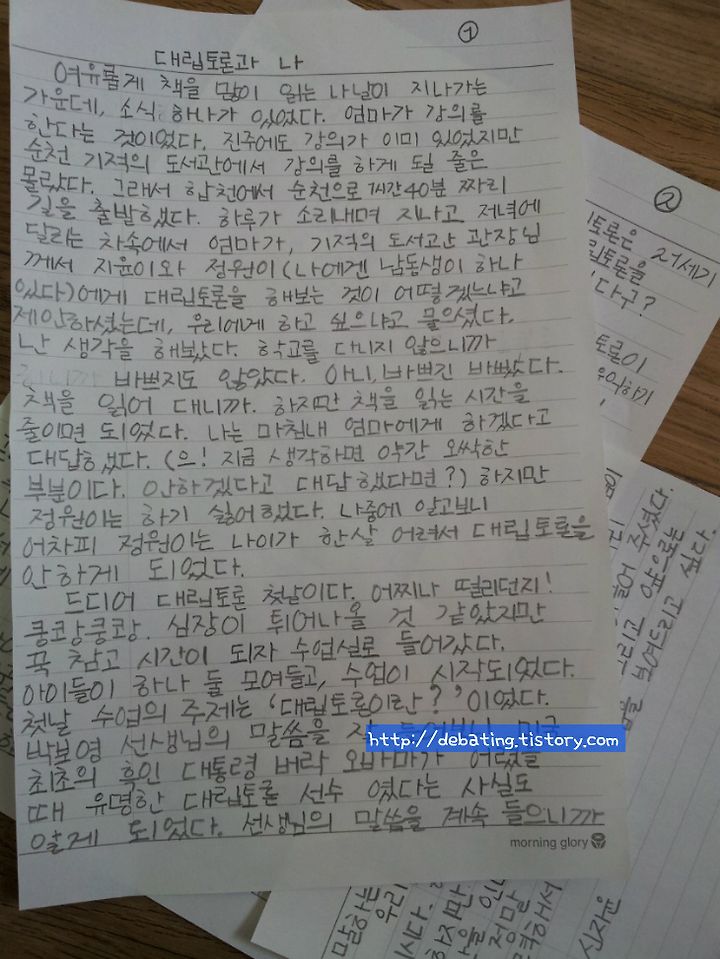 ①
대립토론과 나
여유롭게 책을 많이 읽는 나날이 지나가는
가운데, 소식 하나가 있었다. 엄마가 강의를
한다는 것이었다. 진주에도 강의가 이미 있었지만
순천 기적의 도서관에서 강의를 하게 될 줄은
몰랐다. 그래서 합천에서 순천으로 1시간40분 짜리
길을 출발했다. 하루가 소리내며 지나고 저녁에
달리는 차속에서 엄마가, 기적의 도서관 관장님
께서 지윤이와 정원이(나에겐 남동생이 하나
있다)에게 대립토론을 해보는 것이 어떻겠느냐고
제안하셨는데, 우리에게 하고 싶으냐고 물으셨다.
난 생각을 해보았다. 학교를 다니지 않으니까
바쁘지도 않았다. 아니, 바쁘긴 바빴다.
책을 읽어 대니까. 하지만 책을 읽는 시간을
줄이면 되었다. 나는 마침내 엄마에게 하겠다고
대답했다. (으! 지금 생각하면 약간 오싹한
부분이다. 안하겠다고 대답했다면?) 하지만
정원이는 하기 싫어했었다. 나중에 알고보니
어차피 정원이는 나이가 한살 어려서 대립토론을
안하게 되었다.
드디어 대립토론 첫날이다. 어찌나 떨리던지!
쿵쾅쿵쾅. 심장이 튀어나올 것 같았지만
꾹 참고 시간이 되자 수업실로 들어갔다.
아이들이 하나 둘 모여들고, 수업이 시작되었다.
첫날 수업의 주제는 '대립토론이란?'이었다.
박보영 선생님의 말씀을
http://debating.tistory.com
최초의 흑인 대통령 버락 오바마가 어렸을
때 유명한 대립토론 선수 였다는 사실도
알게 되었다. 선생님의 말씀을 계속 들으니까
morning glory
②
토론은 21세기
립토론을
다구?
토론이
말하는
우리
시다.
하지만
정말
신지윤